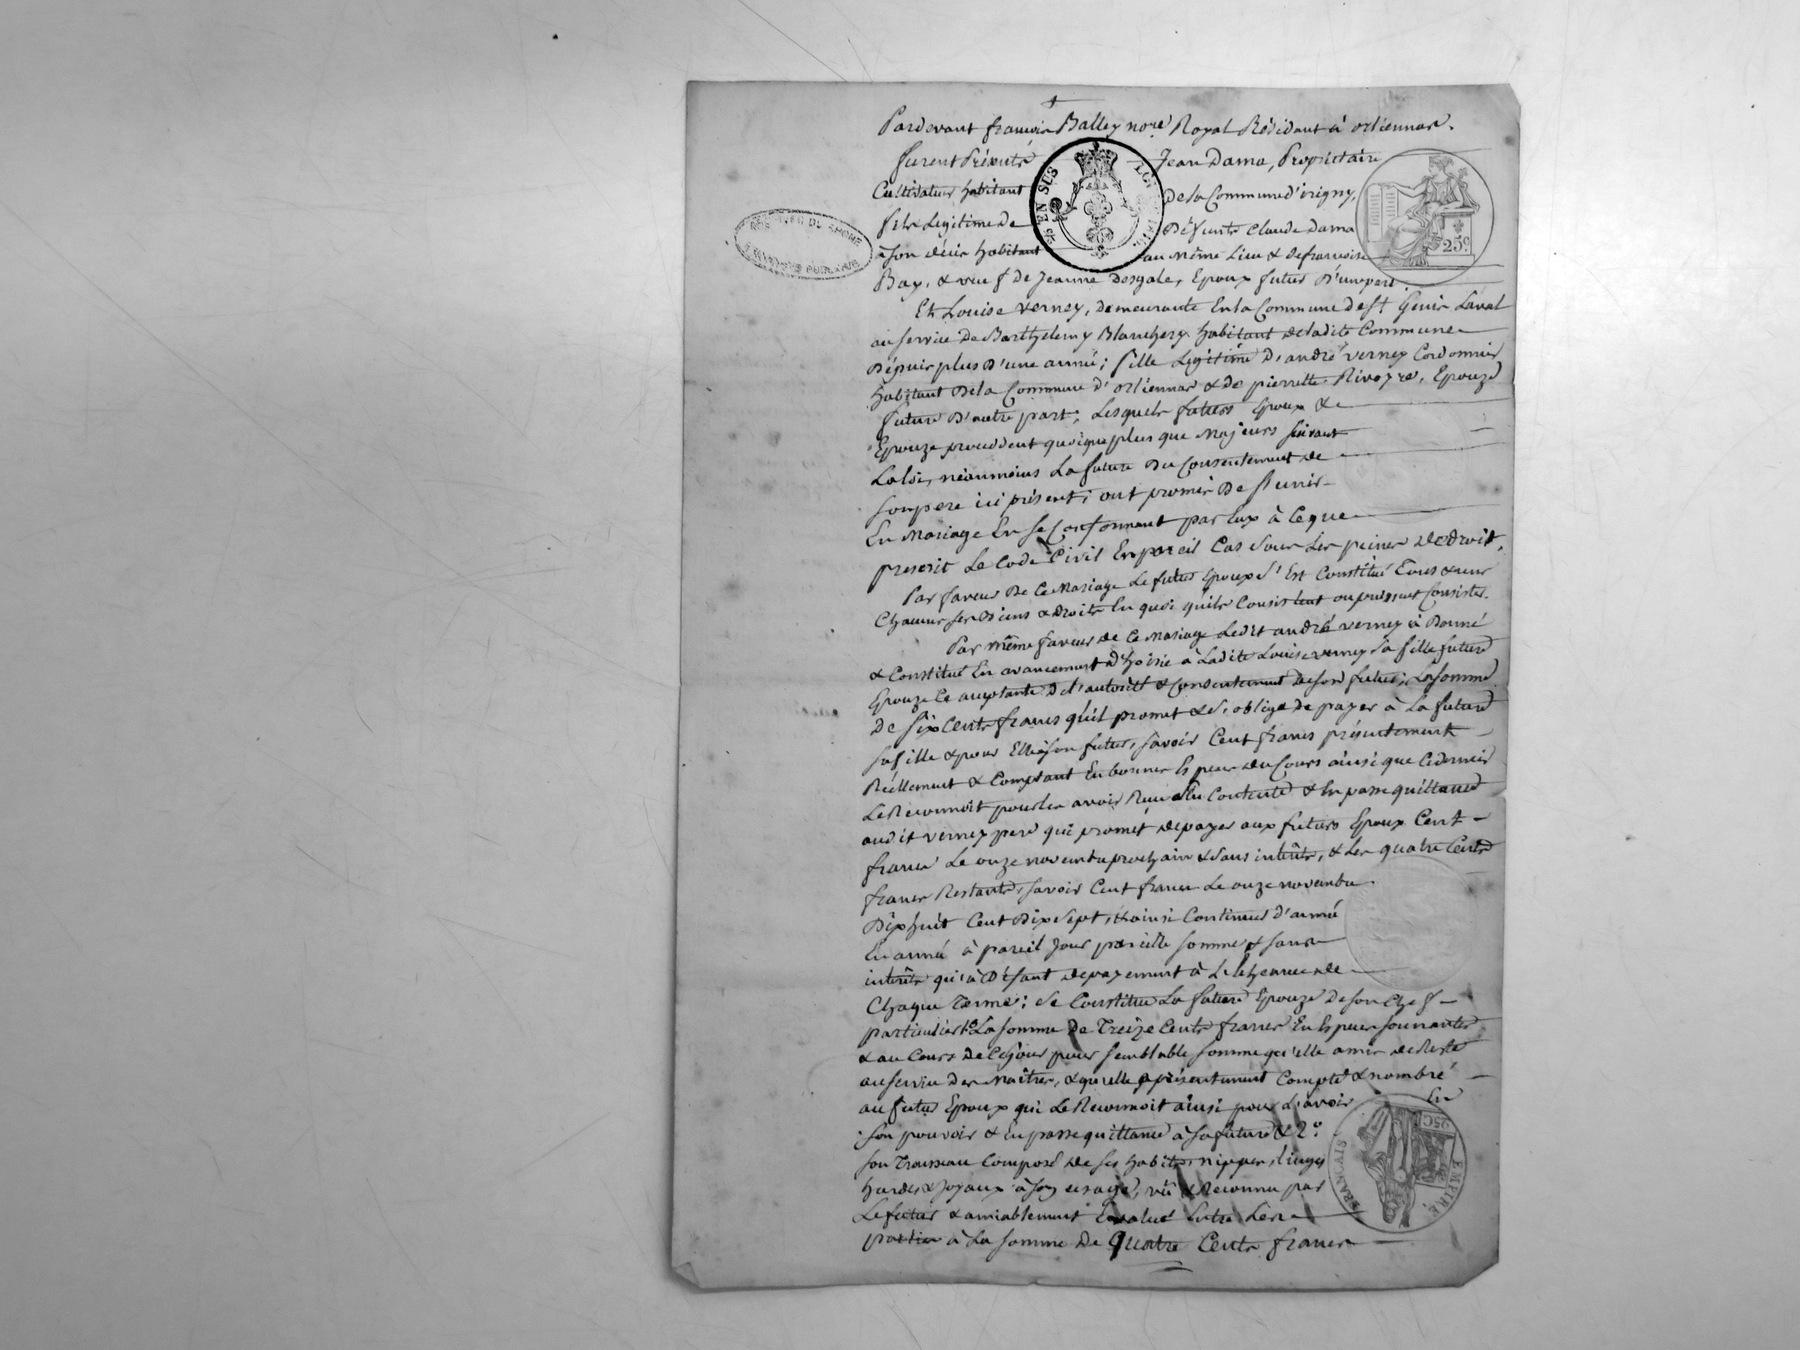 Pardevant françois Balley no.re Royal Résidant à orliennas.
furent Présents Jean Dama, Propriétaire
Cultivateur habitant De la Commune d'irigny,
fils Legitime de Défunts Claude Dama
à Son décès habitant au Même Lieu & de françoise
Bay, & veuf de Jeanne Desgale, Epoux futur D'une part.
Et Louise verney, demeurante En la Commune de St Genis Laval
au service de Barthelemy Blanchery habitant de ladite Commune
Dépuis plus D'une année; fille Legitime d'andré verney Cordonnier
habitant De la Commune d'orliennas & de pierrette Rivoyre, Epouze
future D'autre part; Lesquels futurs Epoux &
Epouze procédent quoique plus que Majeurs suivant
La loi, néanmoins La future Du Consentement de
son pere ici présent; ont promis De S'unir
En Mariage En Se Conformant par Eux à Ce que
prescrit Le Code Civil En pareil Cas Sous Les peines de droit,
Par faveur De Ce Mariage Le futur Epoux S'Est Constitué Tous & uns
Chacuns ses Biens & droits En quoi qu'ils Consistent ou puissent Consister.
Par même faveur de Ce Mariage Ledit andré verney a Donné
& Constitué En avancement d'hoirie à Ladite Louise verney Sa fille future
Epouze Ce acceptante De l'autorité & Consentement de son futur, La Somme
De Six Cents francs qu'il promet & S'oblige de payer à La future
Sa fille & pour Elle à Son futur, Savoir Cent francs présentement
Réellement & Comptant En bonnes Especes du Cours ainsi que Ce dernier
Le Reconnoît pour les avoir Reçu Est Contenté & En passe quittance
audit verney pere qui promet de payer aux futurs Epoux Cent
francs Le onze novembre prochain & Sans intérêts, & Les quatre Cents
francs Restants, Savoir Cent francs Le onze novembre
Dix huit Cent Dix Sept, & ainsi Continuer d'année
En année à pareil Jour pareille Somme & Sans
intérêts qu'à Défaut de payement à L'échéance de
Chaque Terme; Se Constitue La future Epouze De son Chef
particulier 1.o La somme De Treize Cents francs En Especes sonnantes
& au Cours de Ce jour pour Semblable Somme qu'elle a mis de Reste
au service des Maîtres, & qu'elle a présentement Compté & nombré
au futur Epoux qui Le Reconnoit ainsi pour L'avoir En
Son pouvoir & En passe quittance à Sa future & 2.o
Son Trousseau Composé de Ses habits, nippes, linges
hardes & Joyaux à Son usage, vû & Reconnu par
Le futur & amiablement Evalué Entre Les
parties à La Somme De Quatre Cents francs
EN SUS
25c
EMPIRE FRANÇAIS
25C